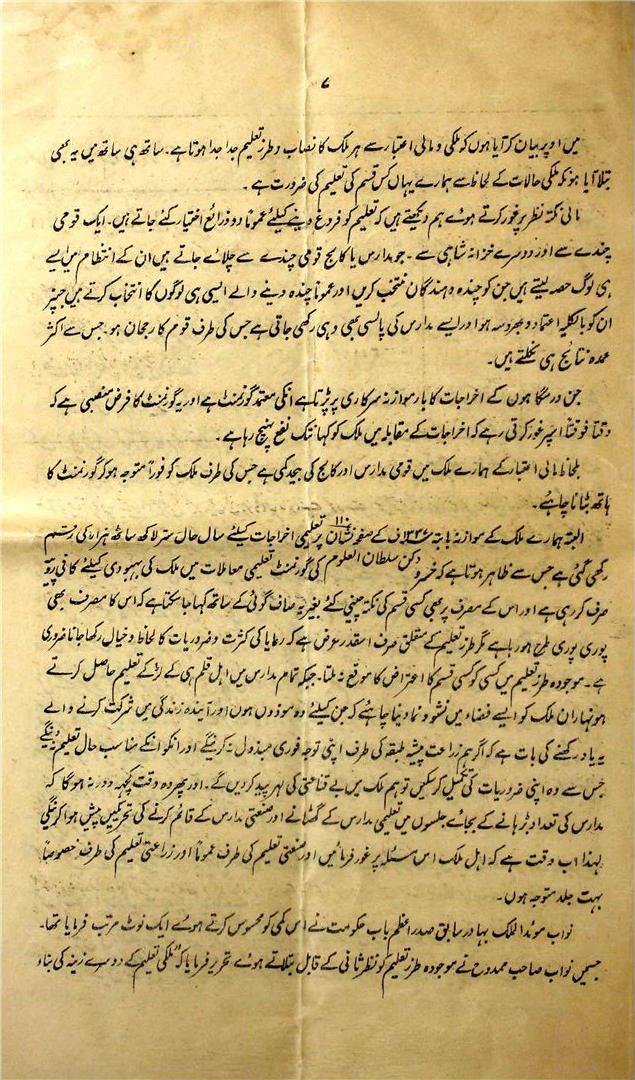 ۷
میں اوپر بیان کر آیا ہوں کہ ملکی و مالی اعتبار سے ہر ملک کا نصاب و طرز تعلیم جدا جدا ہوتا ہے۔ ساتھ ہی ساتھ میں یہ بھی
بتلا آیا ہوں کہ ملکی حالات کے لحاظ سے ہمارے یہاں کس قسم کی تعلیم کی ضرورت ہے۔
مالی نکتہ نظر پر غور کرتے ہوے ہم دیکھتے ہیں کہ تعلیم کو فروغ دینے کیلئے عموماً دو ذرائع اختیار کئے جاتے ہیں۔ ایک قومی
چندے سے اور دوسرے خزانہ شاہی سے۔ جو مدارس یا کالج قومی چندے سے چلاے جاتے ہیں ان کے انتظام میں ایسے
ہی لوگ حصہ لیتے ہیں جن کو چندہ دہندگان منتخب کریں اور عموماً چندہ دینے والے ایسی ہی لوگوں کا انتخاب کرتے ہیں جنپر
ان کو بالکلیہ اعتماد و بھروسہ ہو اور ایسے مدارس کی پالسی بھی وہی رکھی جاتی ہے جس کی طرف قوم کا رجحان ہو۔ جس سے اکثر
عمدہ نتائج ہی نکلتے ہیں۔
جن درسگاہوں کے اخراجات کا بار موازنہ سرکاری پر پڑتا ہے انکی معتمد گورنمنٹ ہے اور یہ گورنمنٹ کا فرض منصبی ہے کہ
وقتاً فوقتاً اسپر غور کرتی رہے کہ اخراجات کے مقابلہ میں ملک کو کہانتک نفع پہنچ رہا ہے۔
بلحاظ مالی اعتبار کے ہمارے ملک میں قومی مدارس اور کالج کی بیحد کمی ہے جس کی طرف ملک کو فوراً متوجہ ہوکر گورنمنٹ کا
ہاتھ بٹانا چاہئے۔
البتہ ہمارے ملک کے موازنہ بابتہ ۱۳۳۷ف کے صفحہ نشان ۱۱ پر تعلیمی اخراجات کیلئے سال حال ستر لاکھ ساٹھ ہزار کی رقم
رکھی گئی ہے جس سے ظاہر ہوتا ہے کہ خسرو دکن سلطان العلوم کی گورنمنٹ تعلیمی معاملات میں ملک کی بہبودی کیلئے کافی روپیہ
صرف کر رہی ہے اور اس کے مصرف پر بھی کسی قسم کی نکتہ چینی کئے بغیر یہ صاف گوئی کے ساتھ کہا جا سکتا ہے کہ اس کا مصرف بھی
پوری پوری طرح ہو رہا ہے مگر طرز تعلیم کے متعلق صرف اسقدر عرض ہے کہ رعایا کی کثرت و ضروریات کا لحاظ و خیال رکھا جانا ضروری
ہے۔ موجودہ طرز تعلیم میں کسی کو کسی قسم کا اعتراض کا موقع نہ ملتا۔ جبکہ تمام مدارس میں اہل قلم ہی کے لڑکے تعلیم حاصل کرتے
ہونہاران ملک کو ایسے فضاء میں نشو و نما دینا چاہئے کہ جن کیلئے وہ موزوں ہوں اور آیندہ زندگی میں شرکت کرنے والے
یہ یاد رکھنے کی بات ہے کہ اگر ہم زراعت پیشہ طبقہ کی طرف اپنی توجہ فوری مبذول نہ کرینگے اور انکو انکے مناسب حال تعلیم نہ دینگے
جس سے وہ اپنی ضروریات کی تکمیل کر سکیں تو ہم ملک میں بے قناعتی کی لہر پیدا کر دیں گے۔ اور پھر وہ وقت کچھہ دور نہ ہوگا کہ
مدارس کی تعداد بڑہانے کے بجائے جلسوں میں تعلیمی مدارس کے گھٹانے اور صنعتی مدارس کے قائم کرنے کی تحریکیں پیش ہوا کرینگی
لہذا اب وقت ہے کہ اہل ملک اس مسئلہ پر غور فرمائیں اور صنعتی تعلیم کی طرف عموماً اور زراعتی تعلیم کی طرف خصوصاً
بہت جلد متوجہ ہوں۔
نواب موئد الملک بہادر سابق صدر اعظم باب حکومت نے اس کمی کو محسوس کرتے ہوے ایک نوٹ مرتب فرمایا تھا۔
جسمیں نواب صاحب ممدوح نے موجودہ طرز تعلیم کو نظر ثانی کے قابل بتلاتے ہوے تحریر فرمایا کہ "ملکی تعلیم کے دوسرے زینہ کی بناء